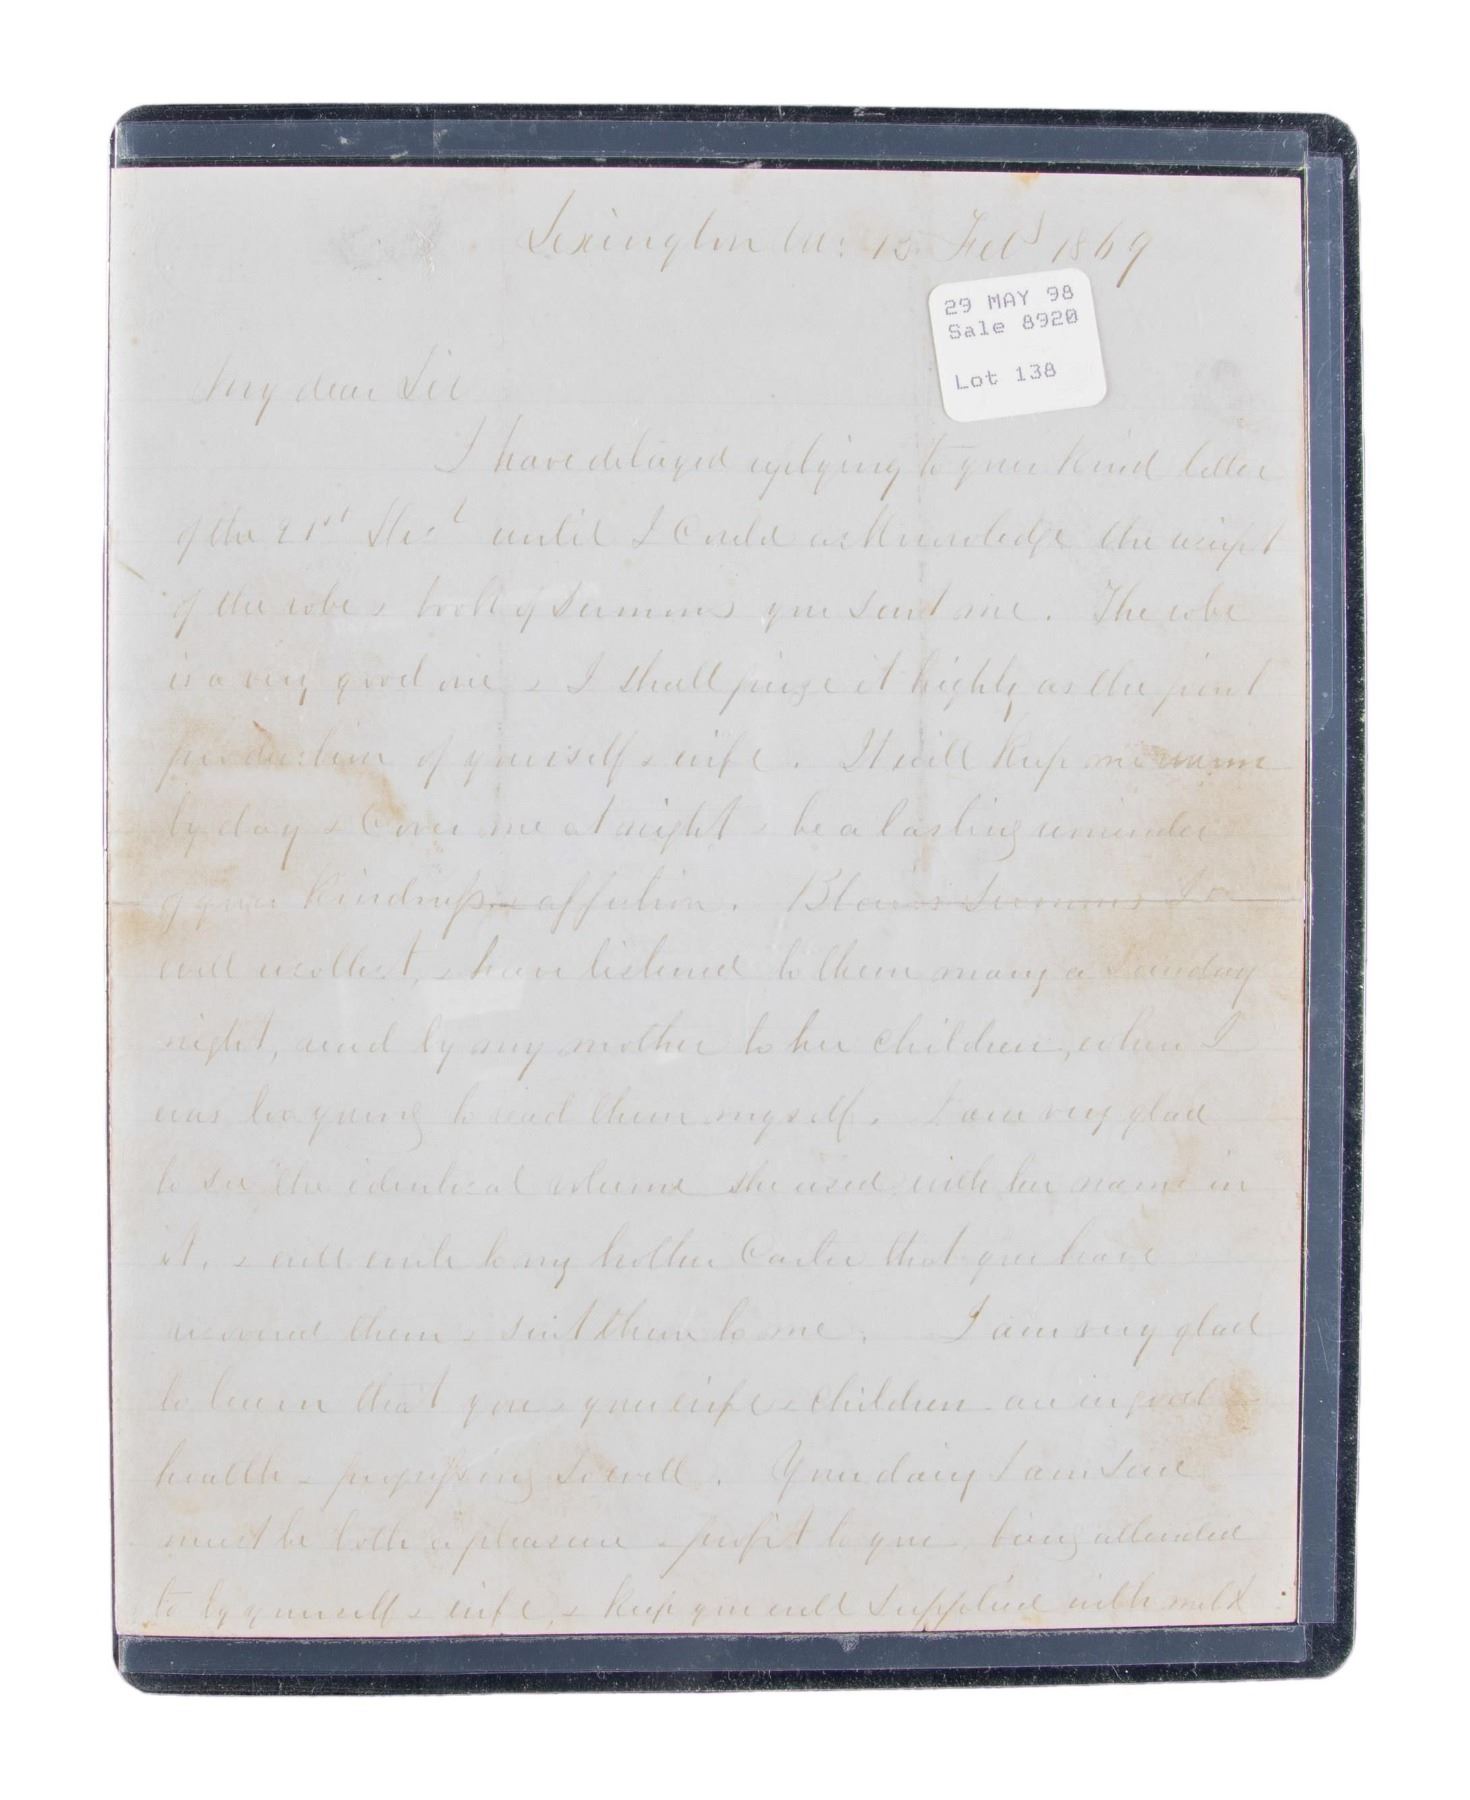 Lexington Va: 13 Feb 1869
29 MAY 98
Sale 8920
Lot 138
My dear Sir
I have delayed replying to your kind letter
of the 21st until I could acknowledge the receipt
of the robe & book of Sermons you sent me. The robe
is a very good one & I shall prize it highly as the joint
production of yourself & wife. It will keep me warm
by day & cover me at night & be a lasting reminder
of your kindness & affection. Blair's Sermons I
well recollect, & have listened to them many a Sunday
night, read by my mother to her children, when I
was too young to read them myself. I am very glad
to see the identical volume she used with her name in
it, & will write to my brother Carter that you have
recovered them & sent them to me. I am very glad
to learn that you & your wife & children are in good
health & progressing so well. Your dairy I am sure
must be both a pleasure & profit to you, being attended
to by yourself & wife, & keep you well supplied with milk